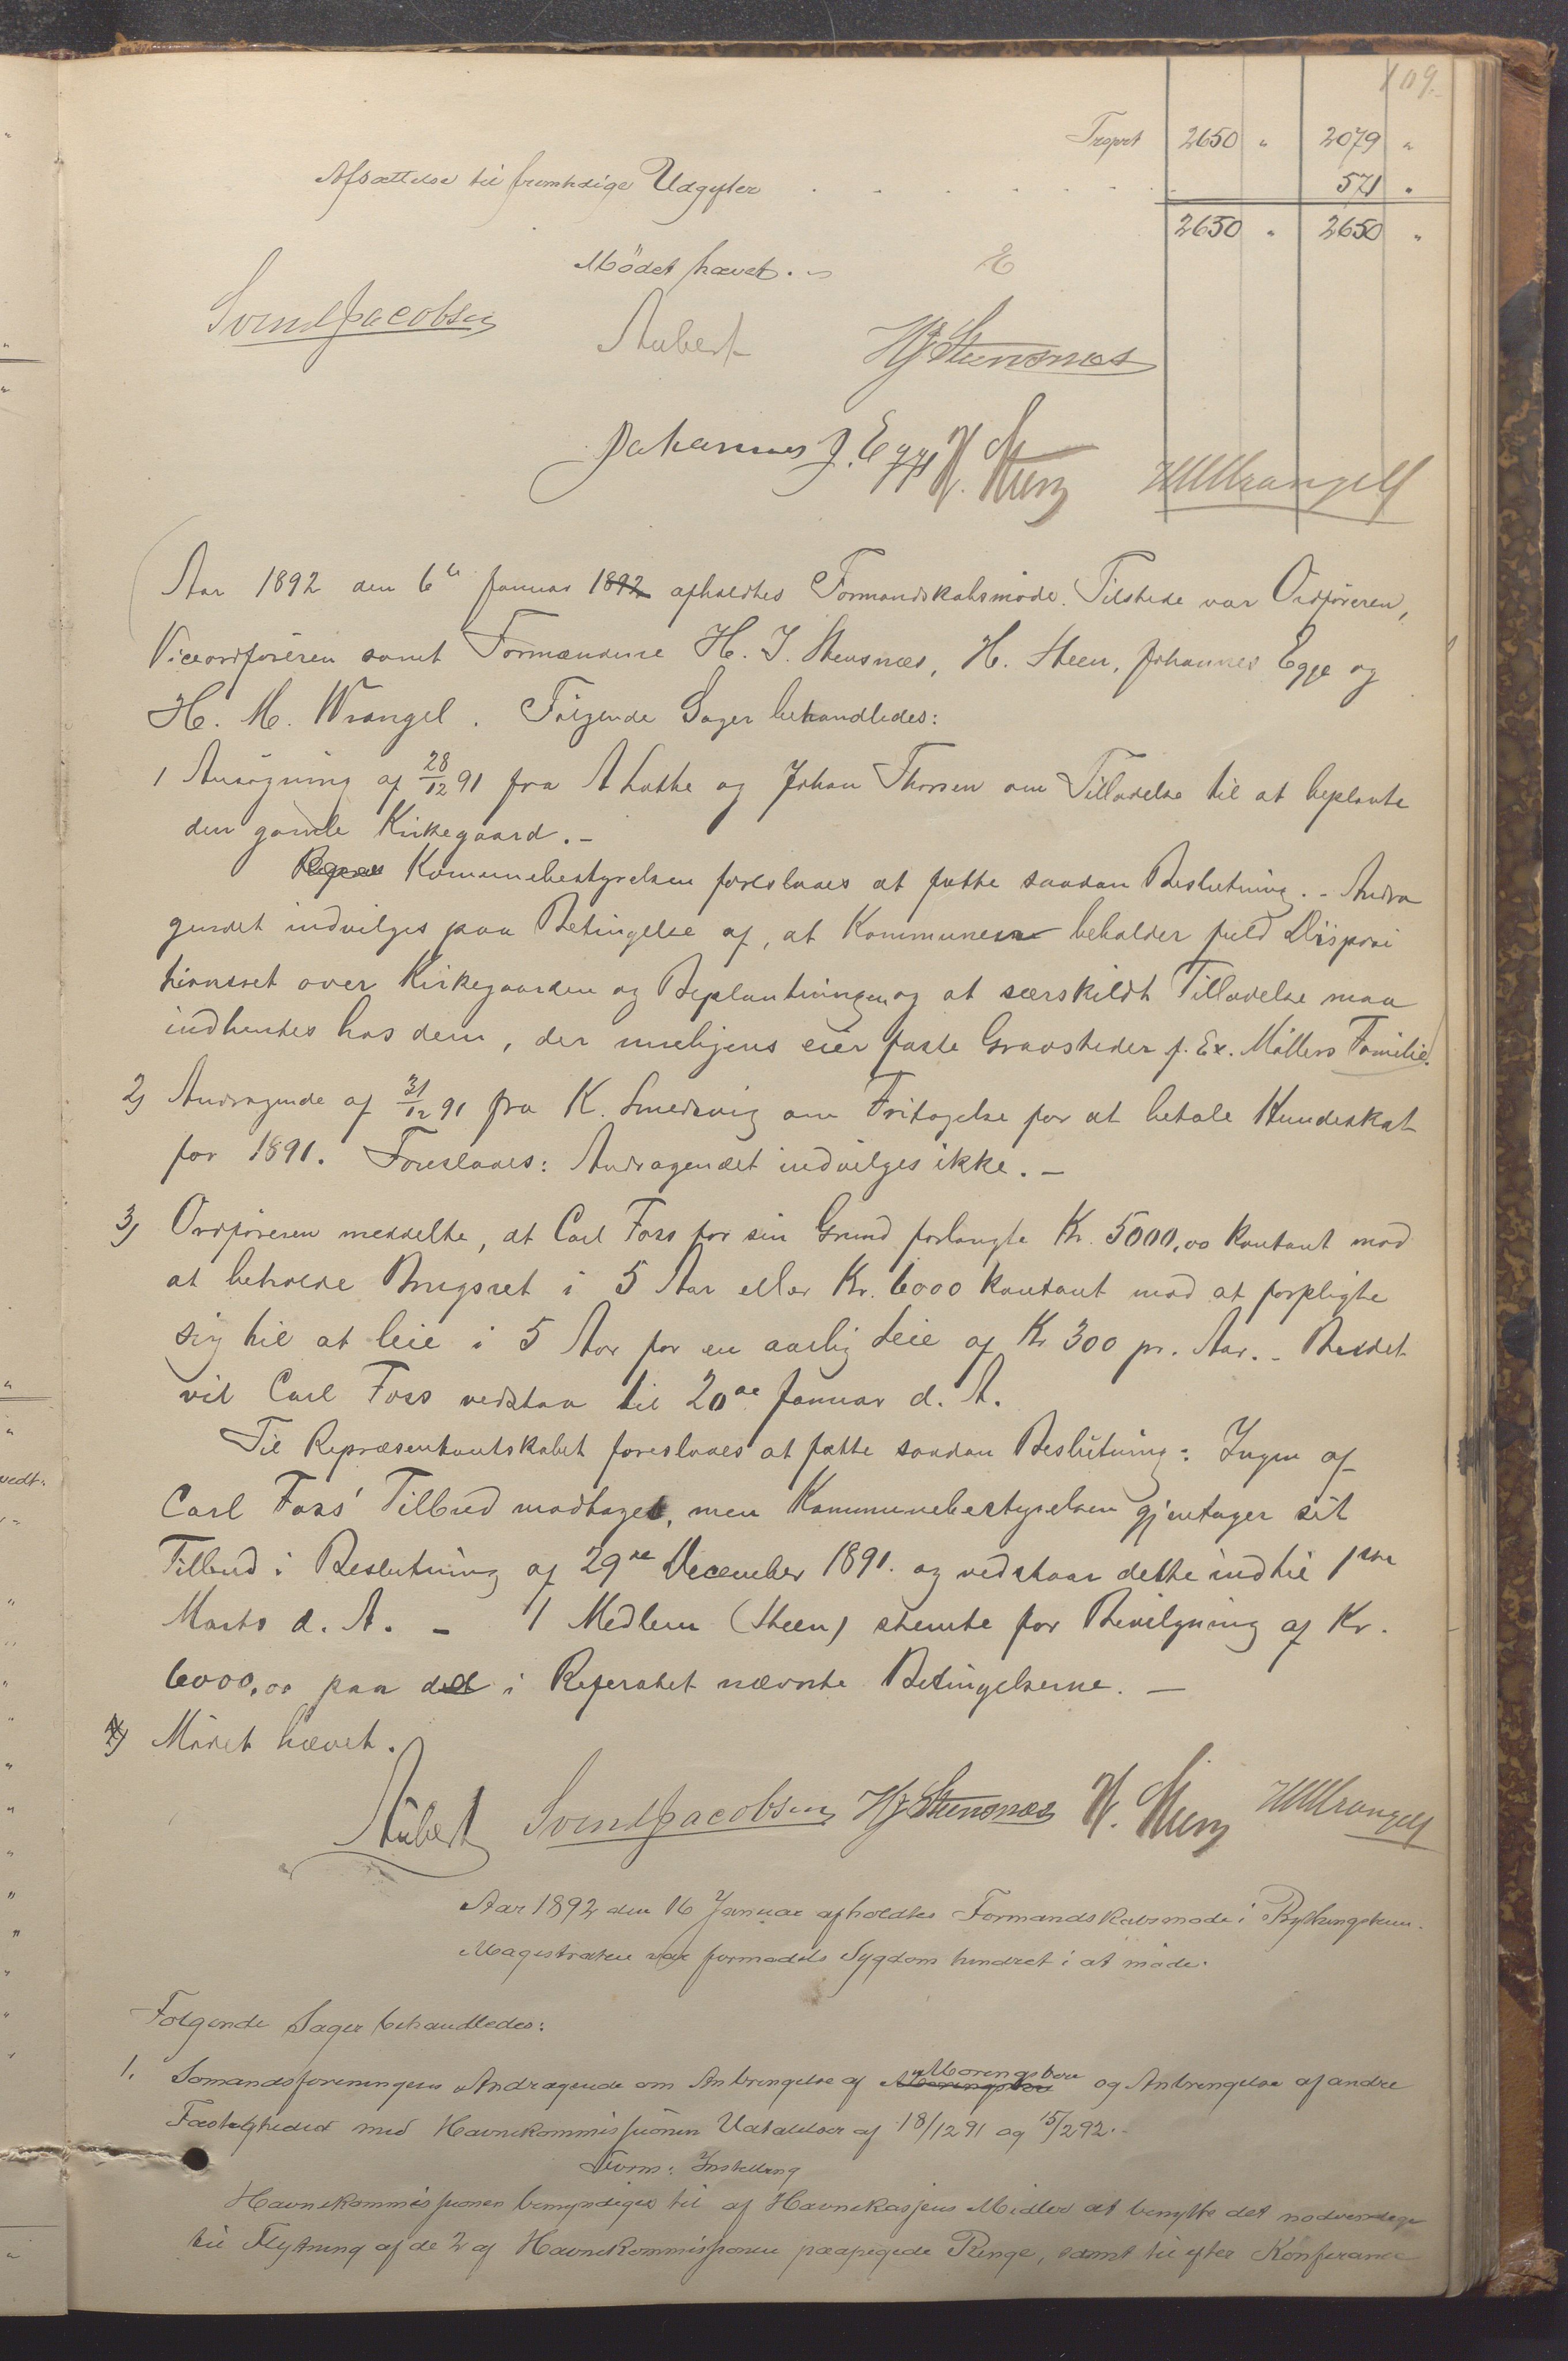 109.
Trsport 2650 " 2079 "
Afsættelse til fremtidige Udgifter . . . . . . . 571 "
2650 " 2650 "
Mödet hævet. -
Svend Jacobsen Aubert HJ Steensnæs
Johannes J. Egge H. Steen HMWrangell
Aar 1892 den 6te Januar 1892 afholdtes Formandskabsmöde. Tilstede var Ordföreren,
Viceordföreren samt Formændene H. J. Stensnæs, H. Steen, Johannes Egge og
H. M. Wrangel. Fölgende Sager behandledes:
1 Ansögning af 28/12 91 fra A Lothe og Johan Thorsen om Tilladelse til at beplante
den gamle Kirkegaard. -
Kommunebestyrelsen foreslaaes at fatte saadan Beslutning. - Andra
gendet indvilges paa Betingelse af, at Kommunen beholder fuld Disposi
tionsret over Kirkegaarden og Beplantningen og at særskildt Tilladelse maa
indhentes hos dem, der muligens eier faste Gravsteder f. Ex. Möllers Familie.
2) Andragende af 31/12 91 fra K. Smedsvig om Fritagelse for at betale Hundeskat
for 1891. Foreslaaes: Andragendet indvilges ikke. -
3) Ordföreren meddelte, at Carl Foss for sin Grund forlangte Kr. 5000,00 kontant mod
at beholde Brugsret i 5 Aar eller Kr. 6000 kontant mod at forpligte
sig til at leie i 5 Aar for en aarlig Leie af Kr 300 pr. Aar. - Budet
vil Carl Foss vedstaa til 20de Januar d. A.
Til Repræsentantskabet foreslaaes at fatte saadan Beslutning: Ingen af
Carl Foss' Tilbud modtages, men Kommunebestyrelsen gjentager sit
Tilbud i Beslutning af 29de December 1891. og vedstaar dette indtil 1ste
Marts d. A. - 1 Medlem (Steen) stemte for Bevilgning af Kr.
6000,00 paa de i Referatet nævnte Betingelserne. -
4) Mödet hævet.
Aubert Svend Jacobsen HJ Steensnæs H. Steen HMWrangell
Aar 1892 den 16 Januar afholdtes Formandskabsmöde i Bythingstuen.
Magistraten var formedels Sygdom hindret i at möde.
Følgende Sager behandledes:
1. Sømandsforeningens Andragende om Anbringelse af Moringsbøie Moringsbøie og Anbringelse af andre
Fæsteligheder med Havnekommissionens Udtalelser af 18/12 91 og 15/2 92. -
Form: Instilling
Havnekommissionen bemyndiges til af Havnekassens Midler at benytte det nødvendige
til Flytning af de 2 af Havnekommissionen paapegede Ringe, samt til efter Konferance